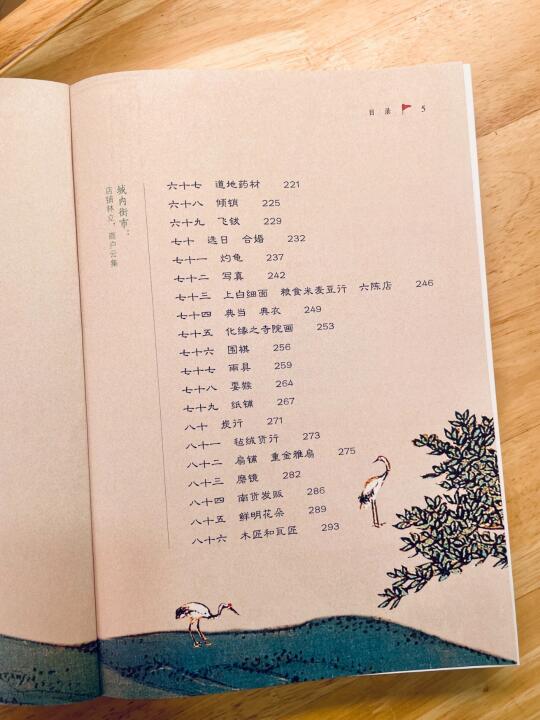 目 录 5
城内街市：
店铺林立，商户云集
六十七 道地药材 221
六十八 倾销 225
六十九 飞钹 229
七十 选日 合婚 232
七十一 灼龟 237
七十二 写真 242
七十三 上白细面 粮食米麦豆行 六陈店 246
七十四 典当 典衣 249
七十五 化缘之寺院画 253
七十六 围棋 256
七十七 雨具 259
七十八 耍猴 264
七十九 纸铺 267
八十 炭行 271
八十一 毡绒货行 273
八十二 扇铺 重金雅扇 275
八十三 磨镜 282
八十四 南货发贩 286
八十五 鲜明花朵 289
八十六 木匠和瓦匠 293